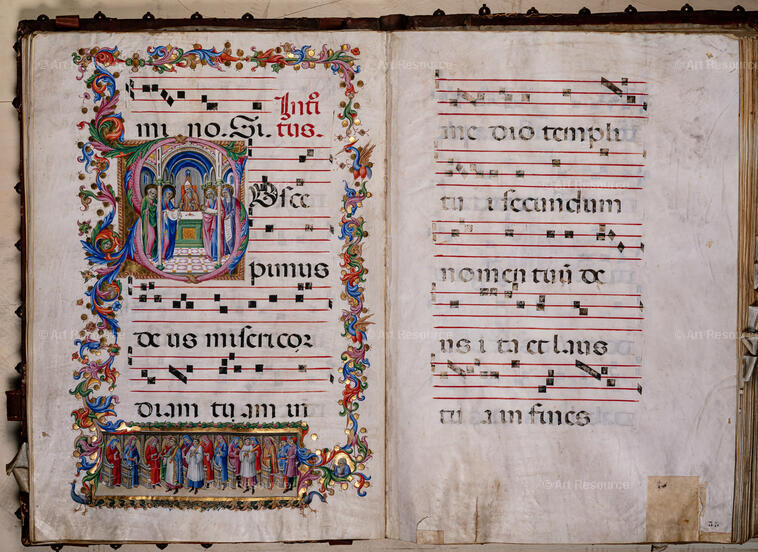 Intͦi
mi no. Si. tus.
S
Vsce
pimus
de us misericor
diam tu am in
me dio templi
tu i secundum
nomen tuũ de
us i ta et laus
tu a in fines
© Art Resource